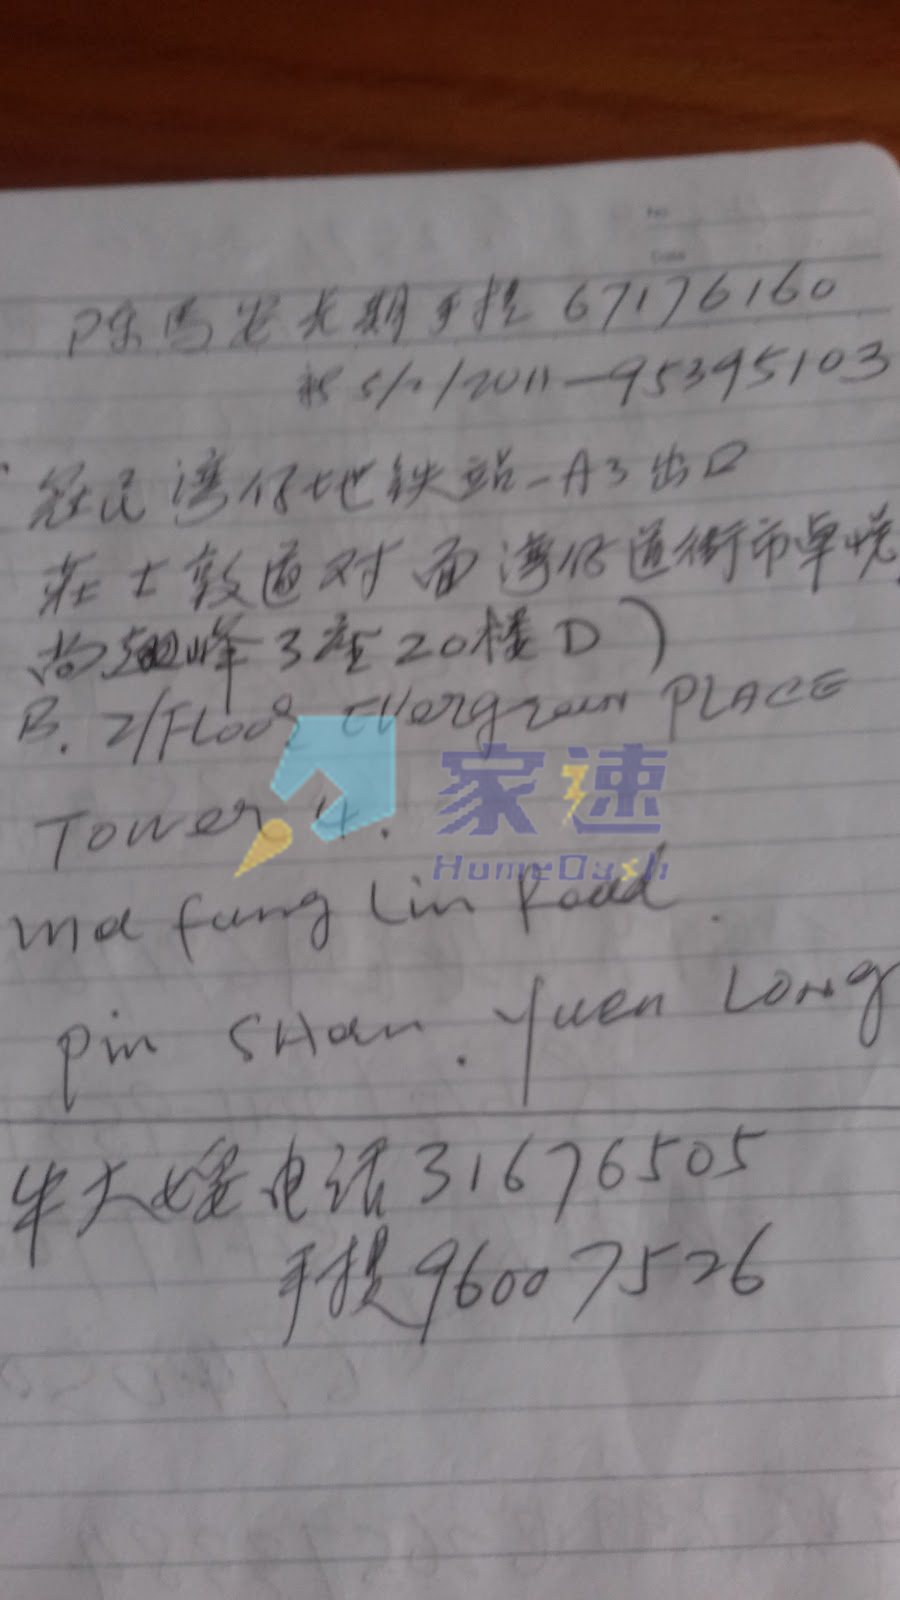 No
Date
长期手提 67176160
新 5/1/2011-95395103
冠民湾仔地铁站-A3出口
庄士敦道对面湾仔道街市卓悦
尚翘峰3座20楼D)
B. 2/Floor Evergreen PLACE
Tower 4.
家速
HomeDash
Ma fung Lin Road.
Pin SHan. Yuen LONG
牛大嫂电话31676505
手提96007526